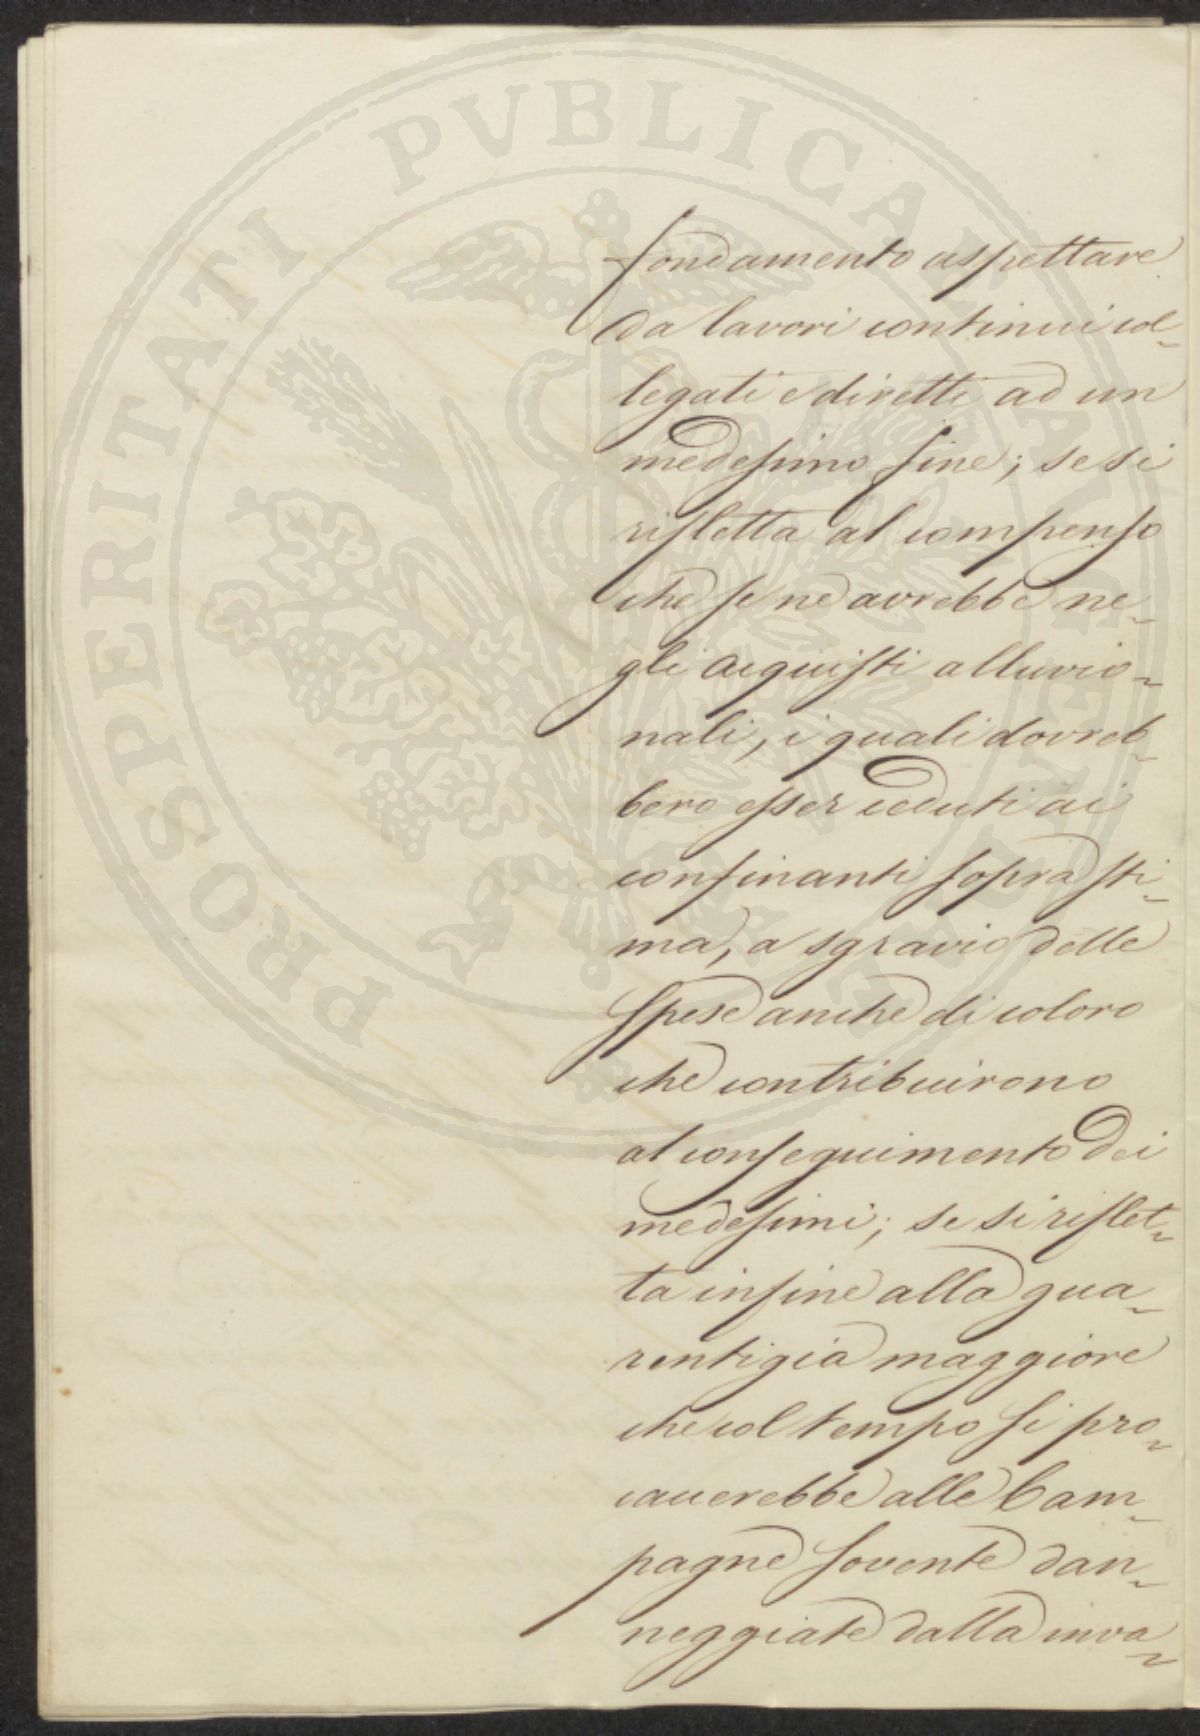 PROSPERITATI PVBLICAE AVGENDAE
fondamento aspettare
da lavori continui col-
legati e diretti ad un
medesimo fine; se si
rifletta al compenso
che se ne avrebbe ne-
gli acquisti alluvio-
nali, i quali dovreb-
bero esser ceduti ai
confinanti sopra sti-
ma, a sgravio delle
spese anche di coloro
che contribuirono
al conseguimento dei
medesimi; se si riflet-
ta infine alla gua-
rentigia maggiore
che col tempo si pro-
cauerebbe alle Cam-
pagne sovente dan-
neggiate dalla inva-